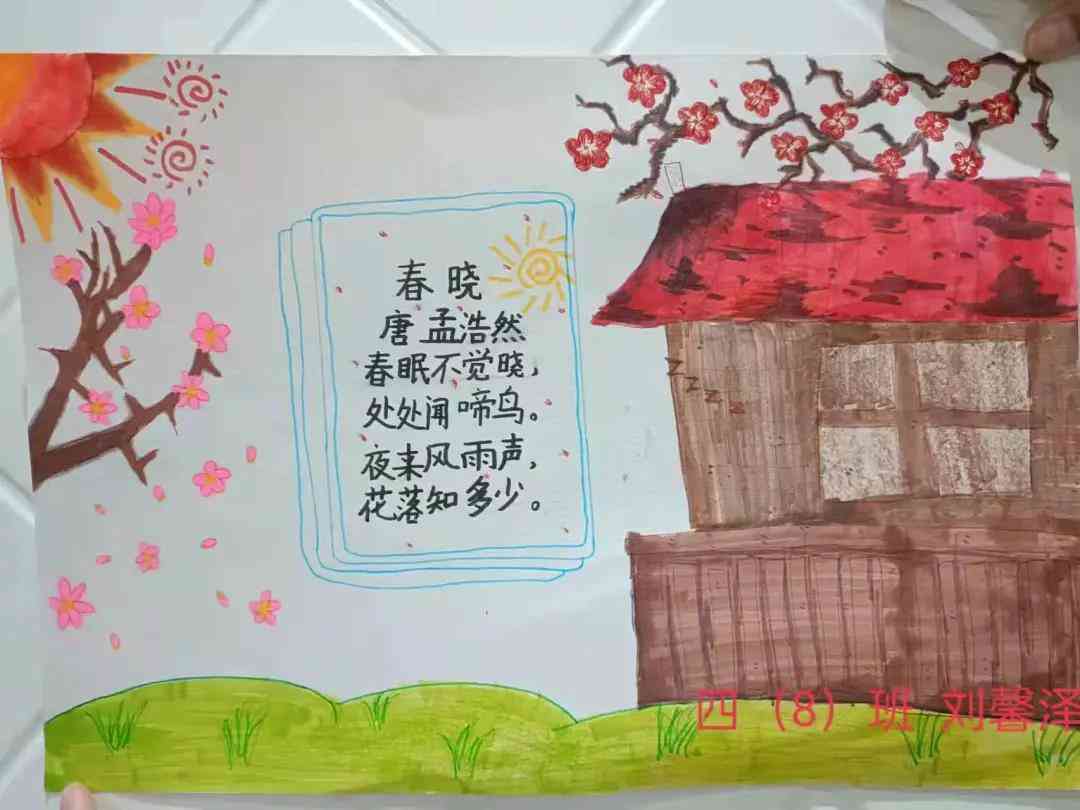 春晓
唐 孟浩然
春眠不觉晓，
处处闻啼鸟。
夜来风雨声，
花落知多少。
z z z z z
四（8）班 刘馨泽